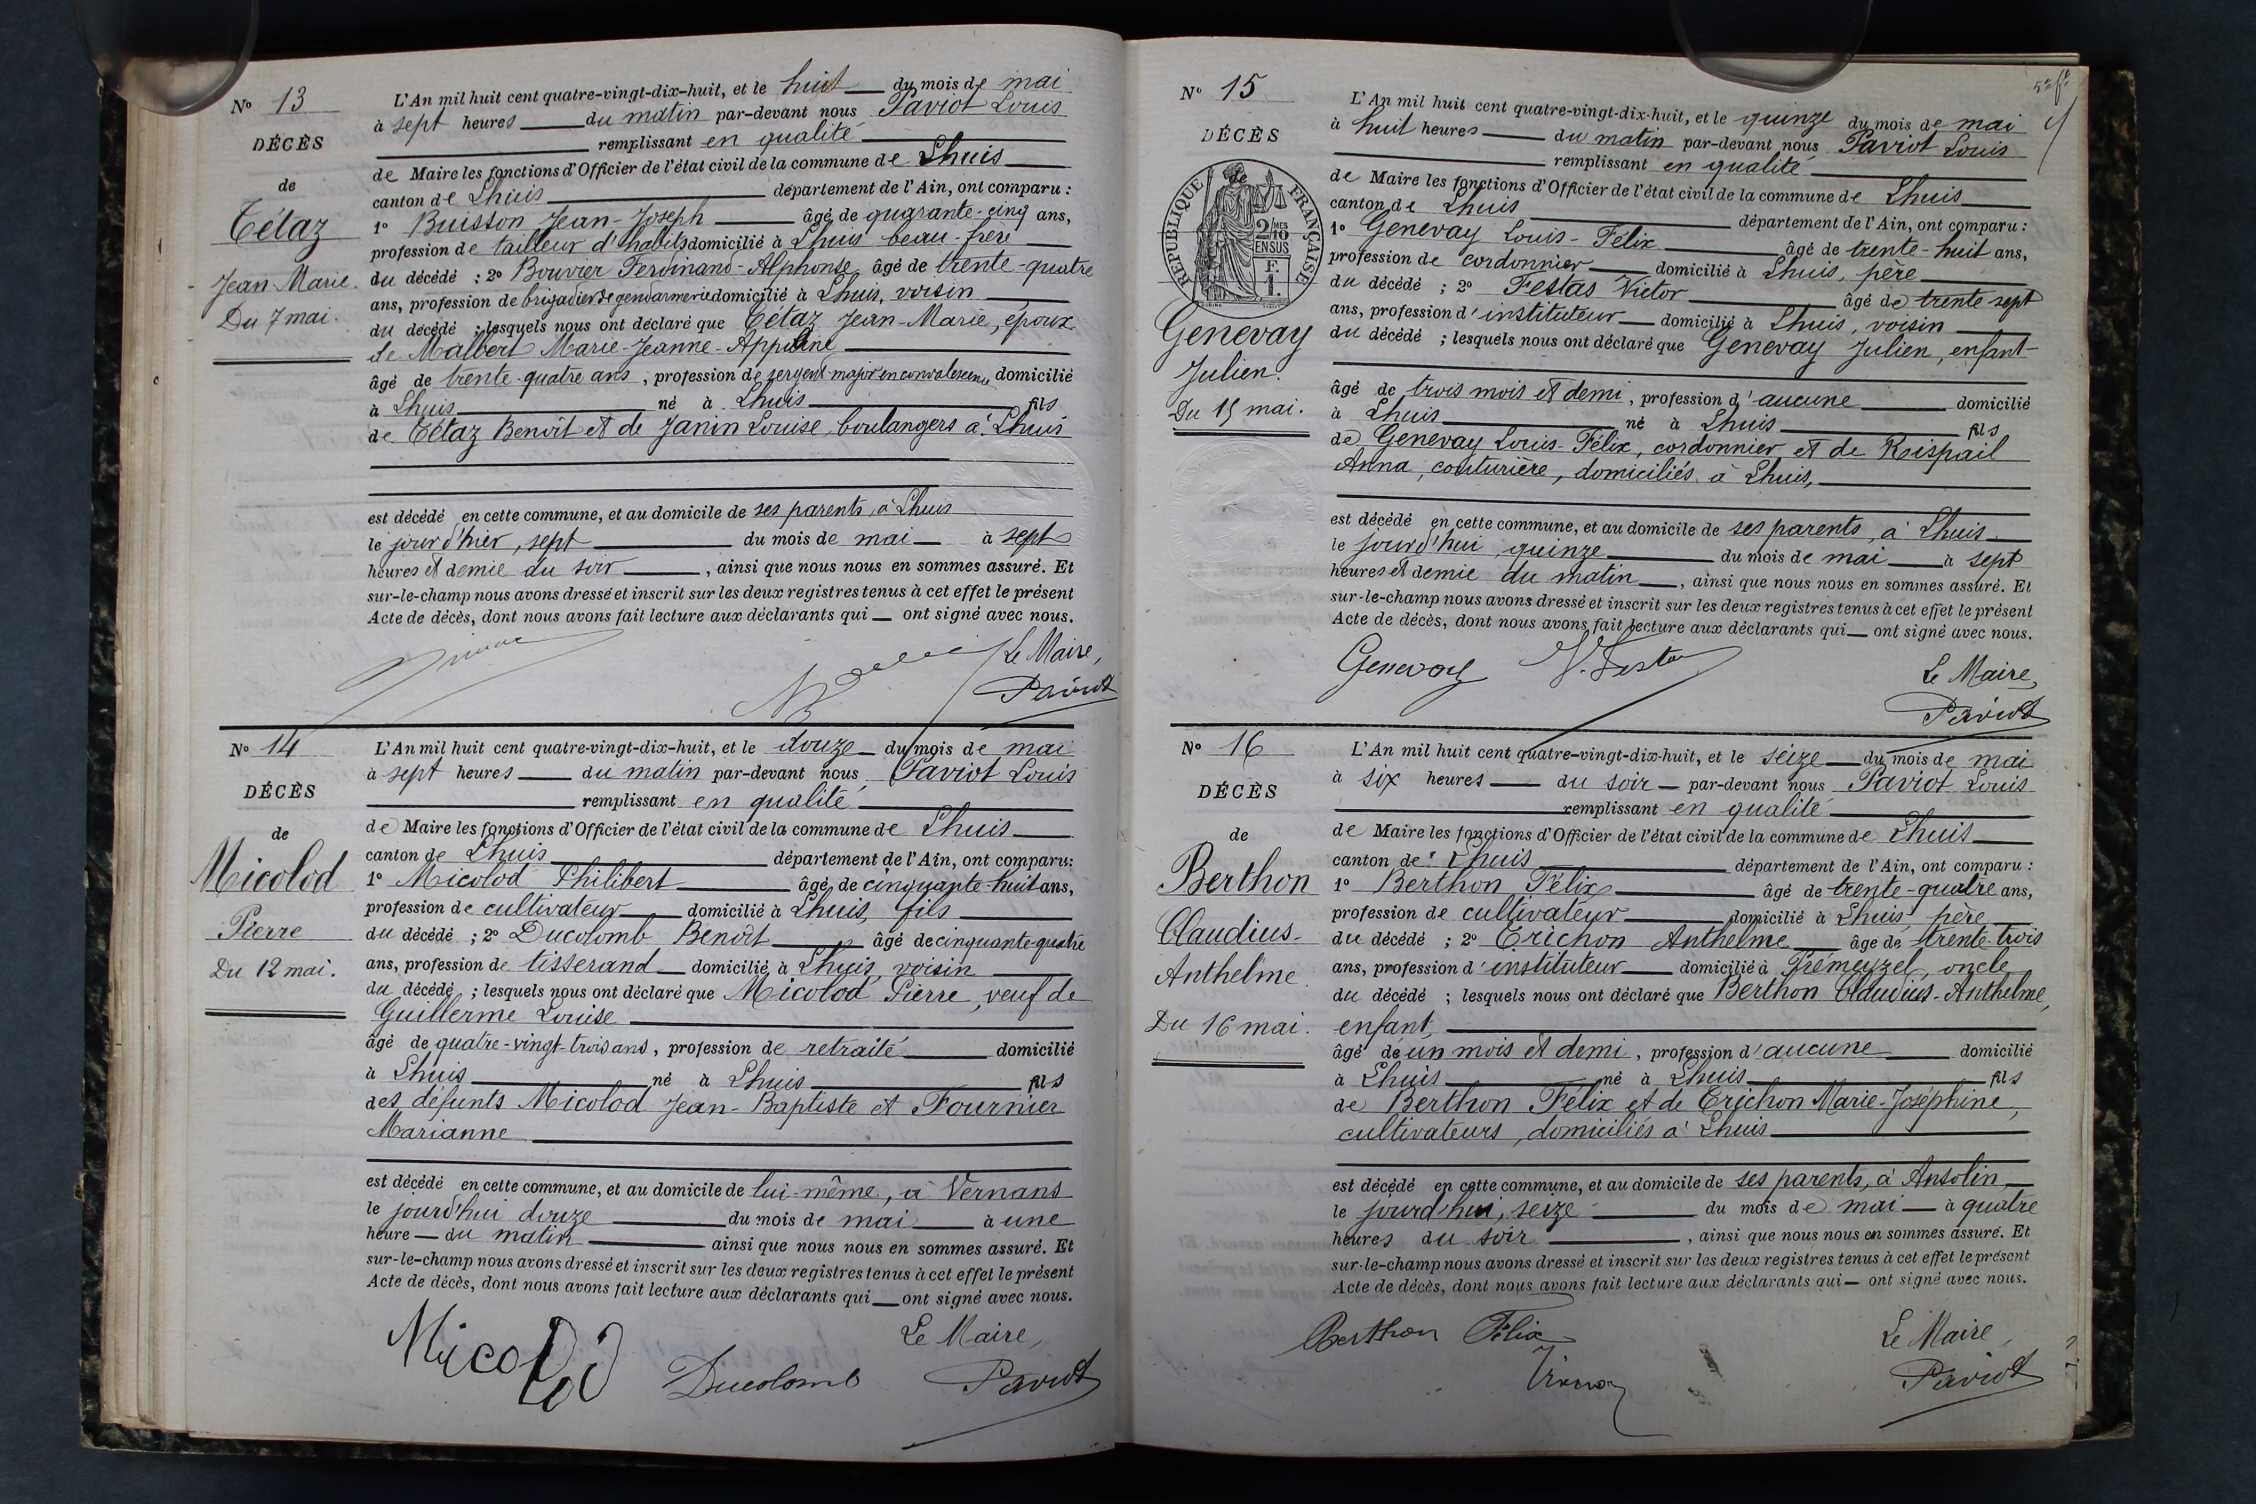 N° 13
DÉCÈS
de
Tétaz
Jean Marie.
Du 7 mai.
L'An mil huit cent quatre-vingt-dix-huit, et le huit du mois de mai
à sept heures du matin par-devant nous Paviot Louis
remplissant en qualité
de Maire les fonctions d'Officier de l'état civil de la commune de Lhuis
canton de Lhuis département de l'Ain, ont comparu :
1° Buisson Jean-Joseph âgé de quarante-cinq ans,
profession de tailleur d'habits domicilié à Lhuis beau-frère
du décédé ; 2° Bouvier Ferdinand-Alphonse âgé de trente-quatre
ans, profession de brigadier de gendarmerie domicilié à Lhuis, voisin
du décédé ; lesquels nous ont déclaré que Tétaz Jean-Marie, époux
de Malbert Marie-Jeanne-Appoline
âgé de trente-quatre ans, profession de sergent-major en convalescence domicilié
à Lhuis né à Lhuis fils
de Tétaz Benoît et de Janin Louise, boulangers à Lhuis
est décédé en cette commune, et au domicile de ses parents, à Lhuis
le jour d'hier, sept du mois de mai à sept
heures et demie du soir, ainsi que nous nous en sommes assuré. Et
sur-le-champ nous avons dressé et inscrit sur les deux registres tenus à cet effet le présent
Acte de décès, dont nous avons fait lecture aux déclarants qui ont signé avec nous.
Le Maire,
Paviot
N° 14
DÉCÈS
de
Micolod
Pierre
Du 12 mai.
L'An mil huit cent quatre-vingt-dix-huit, et le douze du mois de mai
à sept heures du matin par-devant nous Paviot Louis
remplissant en qualité
de Maire les fonctions d'Officier de l'état civil de la commune de Lhuis
canton de Lhuis département de l'Ain, ont comparu:
1° Micolod Philibert âgé de cinquante-huit ans,
profession de cultivateur domicilié à Lhuis, fils
du décédé ; 2° Ducolomb Benoît âgé de cinquante-quatre
ans, profession de tisserand domicilié à Lhuis, voisin
du décédé ; lesquels nous ont déclaré que Micolod Pierre, veuf de
Guillerme Louise
âgé de quatre-vingt-trois ans, profession de retraité domicilié
à Lhuis né à Lhuis fils
des défunts Micolod Jean-Baptiste et Fournier
Marianne
est décédé en cette commune, et au domicile de lui-même, à Vernans
le jourd'hui douze du mois de mai à une
heure du matin ainsi que nous nous en sommes assuré. Et
sur-le-champ nous avons dressé et inscrit sur les deux registres tenus à cet effet le présent
Acte de décès, dont nous avons fait lecture aux déclarants qui ont signé avec nous.
Micolod
Ducolomb
Le Maire,
Paviot
N° 15
DÉCÈS
de
RÉPUBLIQUE FRANÇAISE
2/10 MES
EN SUS
F.
1.
Genevay
Julien.
Du 15 mai.
L'An mil huit cent quatre-vingt-dix-huit, et le quinze du mois de mai
à huit heures du matin par-devant nous Paviot Louis
remplissant en qualité
de Maire les fonctions d'Officier de l'état civil de la commune de Lhuis
canton de Lhuis département de l'Ain, ont comparu :
1° Genevay Louis-Félix âgé de trente-huit ans,
profession de cordonnier domicilié à Lhuis, père
du décédé ; 2° Festas Victor âgé de trente sept
ans, profession d'instituteur domicilié à Lhuis, voisin
du décédé ; lesquels nous ont déclaré que Genevay Julien, enfant
âgé de trois mois et demi, profession d'aucune domicilié
à Lhuis né à Lhuis fils
de Genevay Louis-Félix, cordonnier et de Rispail
Anna, couturière, domiciliés à Lhuis,
est décédé en cette commune, et au domicile de ses parents, à Lhuis
le jourd'hui quinze du mois de mai à sept
heures et demie du matin, ainsi que nous nous en sommes assuré. Et
sur-le-champ nous avons dressé et inscrit sur les deux registres tenus à cet effet le présent
Acte de décès, dont nous avons fait lecture aux déclarants qui ont signé avec nous.
Genevay
V. Festas
Le Maire,
Paviot
N° 16
DÉCÈS
de
Berthon
Claudius-
Anthelme.
Du 16 mai.
L'An mil huit cent quatre-vingt-dix-huit, et le seize du mois de mai
à six heures du soir par-devant nous Paviot Louis
remplissant en qualité
de Maire les fonctions d'Officier de l'état civil de la commune de Lhuis
canton de Lhuis département de l'Ain, ont comparu :
1° Berthon Félix âgé de trente-quatre ans,
profession de cultivateur domicilié à Lhuis, père
du décédé ; 2° Trichon Anthelme âgé de trente-trois
ans, profession d'instituteur domicilié à Prémeyzel, oncle
du décédé ; lesquels nous ont déclaré que Berthon Claudius-Anthelme,
enfant,
âgé de un mois et demi, profession d'aucune domicilié
à Lhuis né à Lhuis fils
de Berthon Félix et de Trichon Marie-Joséphine,
cultivateurs, domiciliés à Lhuis
est décédé en cette commune, et au domicile de ses parents, à Ansolin,
le jourd'hui, seize du mois de mai à quatre
heures du soir, ainsi que nous nous en sommes assuré. Et
sur-le-champ nous avons dressé et inscrit sur les deux registres tenus à cet effet le présent
Acte de décès, dont nous avons fait lecture aux déclarants qui ont signé avec nous.
Berthon Félix
Le Maire,
Paviot